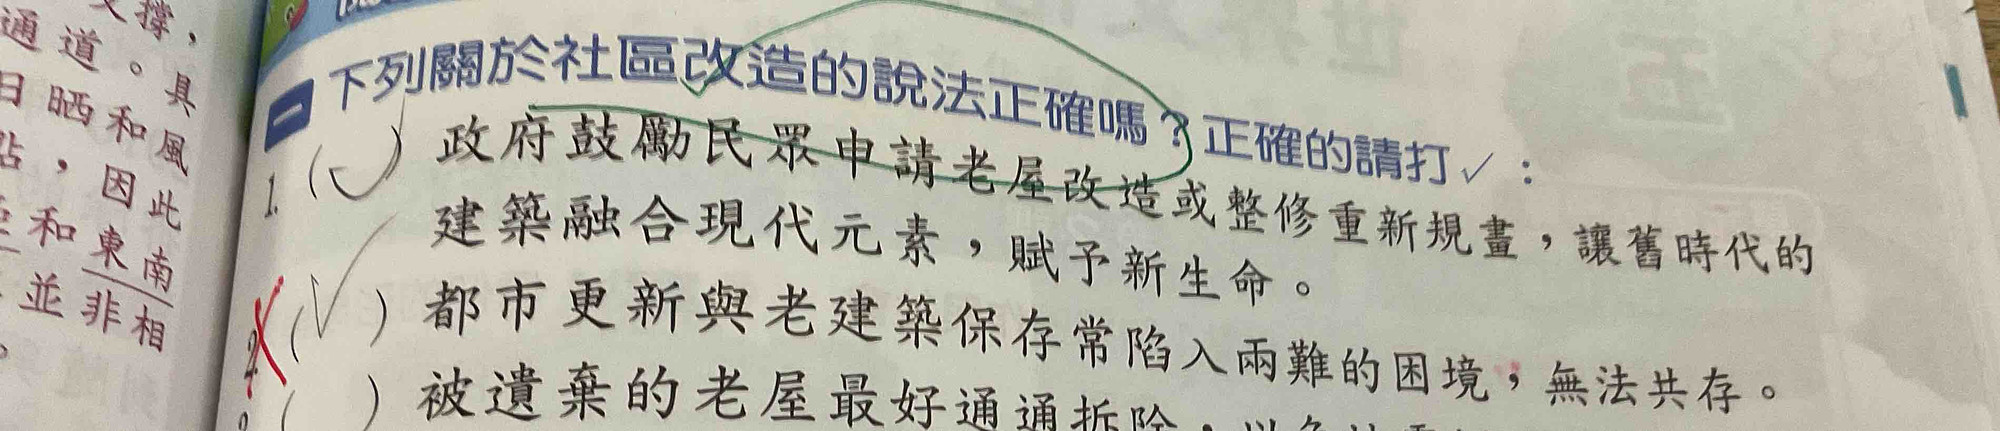 一 下列關於社區改造的說法正確嗎？正確的請打✓：
1. (✓) 政府鼓勵民眾申請老屋改造或整修重新規畫，讓舊時代的
建築融合現代元素，賦予新生命。
2. (✓) 都市更新與老建築保存常陷入兩難的困境，無法共存。
( ) 被遺棄的老屋最好通通拆除，以免
撐，具
通道。
日晒和風
點，因此
和東南
並非相